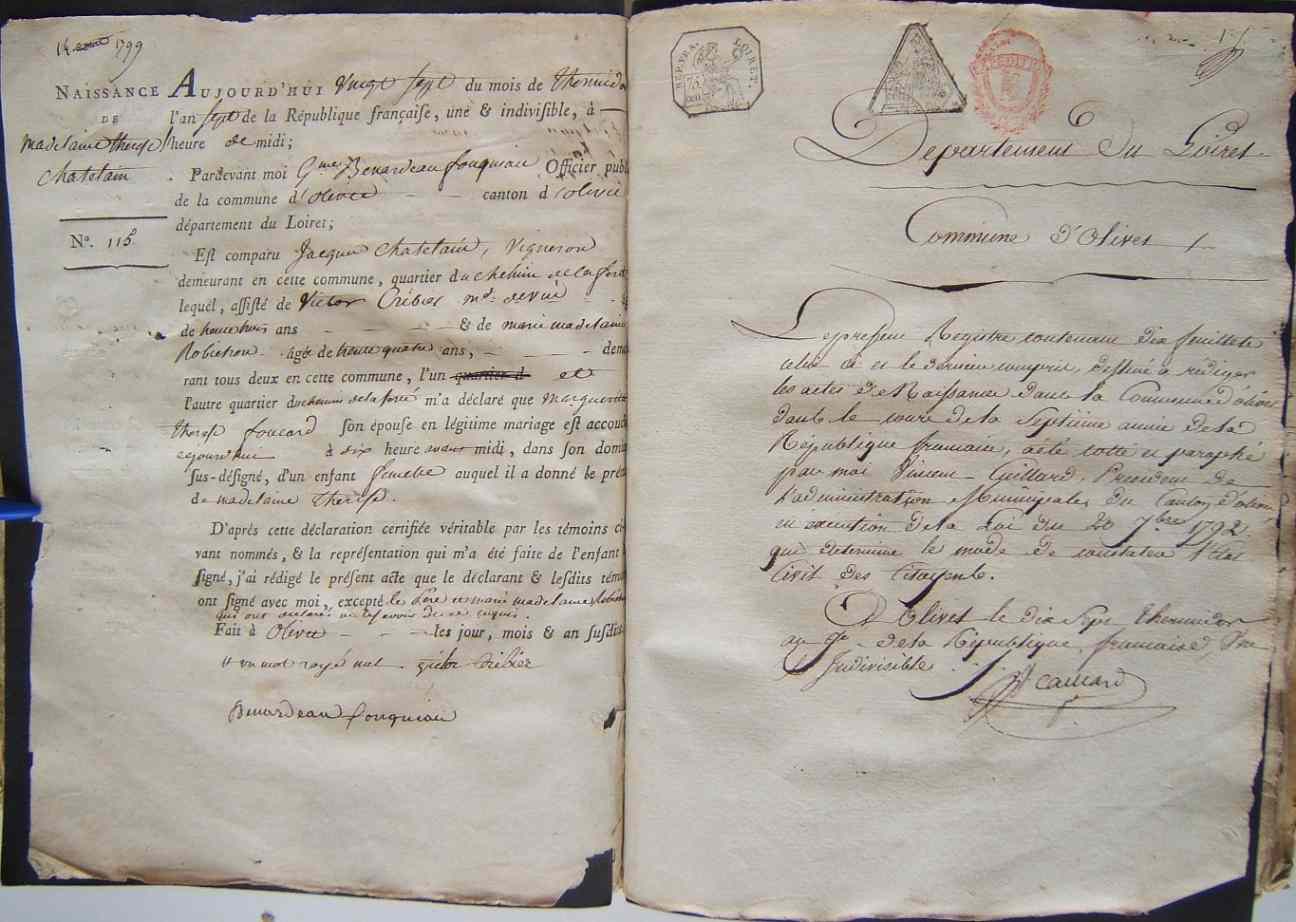 14 aout 1799
NAISSANCE
DE
Madelaine therese
Chatelain
No. 115
AUJOURD'HUI vingt sept du mois de thermido
l'an sept de la République françaiſe, une & indiviſible, à
heure de midi;
Pardevant moi Gme Benardeau fouquiau Officier publ
de la commune d'olivet canton d'olivet
département du Loiret;
Eſt comparu Jacques Chatelain, Vigneron
demeurant en cette commune, quartier du chemin de la ferté
lequel, aſſiſté de Victor Cribier md. de vin
de trente trois ans & de marie madelaine
Robichon âgée de trente quatre ans, demeu
rant tous deux en cette commune, l'un quartier d et
l'autre quartier du chemin de la ferté m'a déclaré que Marguerite
therese foucard ſon épouſe en légitime mariage eſt accouch
cejourdhui à dix heure avant midi, dans ſon domi
ſus-déſigné, d'un enfant femelle auquel il a donné le pré
de madelaine Therese.
D'après cette déclaration certifiée véritable par les témoins ci
vant nommés, & la repréſentation qui m'a été faite de l'enfant
ſigné, j'ai rédigé le préſent acte que le déclarant & leſdits témo
ont ſigné avec moi, excepté le père et marie madelaine Robichon
qui ont déclaré ne le savoir de ce enquis.
Fait à Olivet les jour, mois & an ſuſdits
un mot rayé nul. victor Cribier
Benardeau fouquiau
REP. FRA. LOIRET.
75
Departement Du Loiret
Commune d'Olivet
Le present Registre contenant dix feuillets
celui ci et le dernier compris, destiné à rédiger
les actes de Naissance dans la Commune d'olivet
dans le cours de la Septième année de la
République francaise, a été cotté et paraphé
par moi Vincent Caillard, President de
l'administration Municipale du Canton d'olivet
en execution de la Loi du 20 7bre 1792
qui determine le mode de constater l'Etat
Civil des Citoyens.
A Olivet le dix Sept thermidor
an 7e de la République francaise, Une
& Indivisible.
Caillard